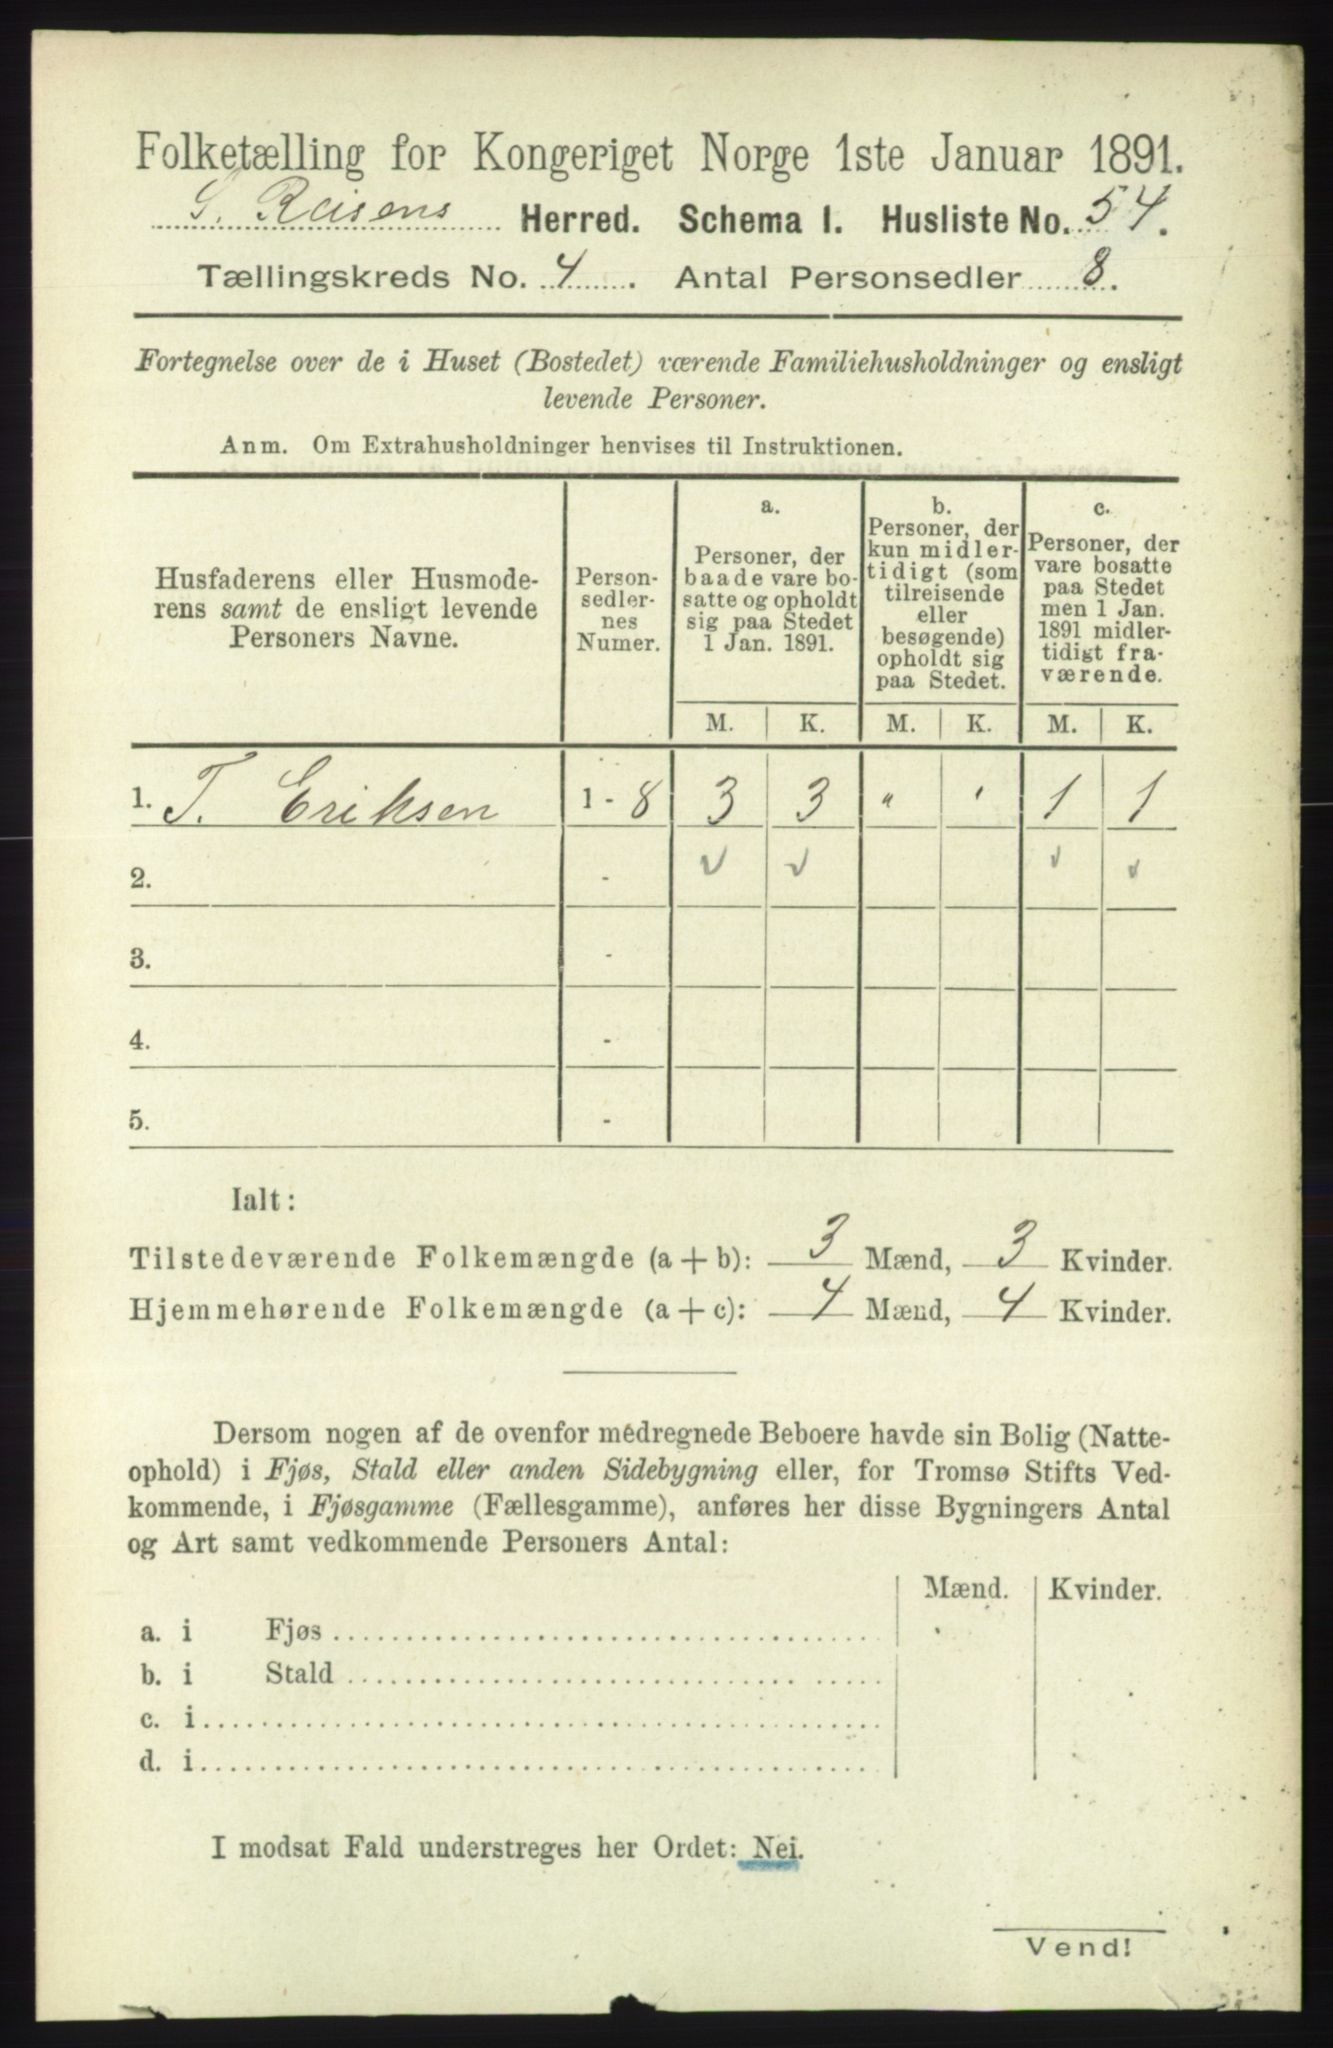 Folketælling for Kongeriget Norge 1ste Januar 1891.
S. Reisens Herred. Schema I. Husliste No. 54.
Tællingskreds No. 4. Antal Personsedler 8.
Fortegnelse over de i Huset (Bostedet) værende Familiehusholdninger og ensligt
levende Personer.
Anm. Om Extrahusholdninger henvises til Instruktionen.
Husfaderens eller Husmode-
rens samt de ensligt levende
Personers Navne.
Person-
sedler-
nes
Numer.
a.
Personer, der
baade vare bo-
satte og opholdt
sig paa Stedet
1 Jan. 1891.
b.
Personer, der
kun midler-
tidigt (som
tilreisende
eller
besøgende)
opholdt sig
paa Stedet.
c.
Personer, der
vare bosatte
paa Stedet
men 1 Jan.
1891 midler-
tidigt fra-
værende.
M. K. M. K. M. K.
1. T. Eriksen 1 - 8 3 3 " " 1 1
2. - ✓ ✓ ✓ ✓
3. -
4. -
5. -
Ialt:
Tilstedeværende Folkemængde (a + b): 3 Mænd, 3 Kvinder.
Hjemmehørende Folkemængde (a + c): 4 Mænd, 4 Kvinder.
Dersom nogen af de ovenfor medregnede Beboere havde sin Bolig (Natte-
ophold) i Fjøs, Stald eller anden Sidebygning eller, for Tromsø Stifts Ved-
kommende, i Fjøsgamme (Fællesgamme), anføres her disse Bygningers Antal
og Art samt vedkommende Personers Antal:
Mænd. Kvinder.
a. i Fjøs
b. i Stald
c. i
d. i
I modsat Fald understreges her Ordet: Nei.
Vend!